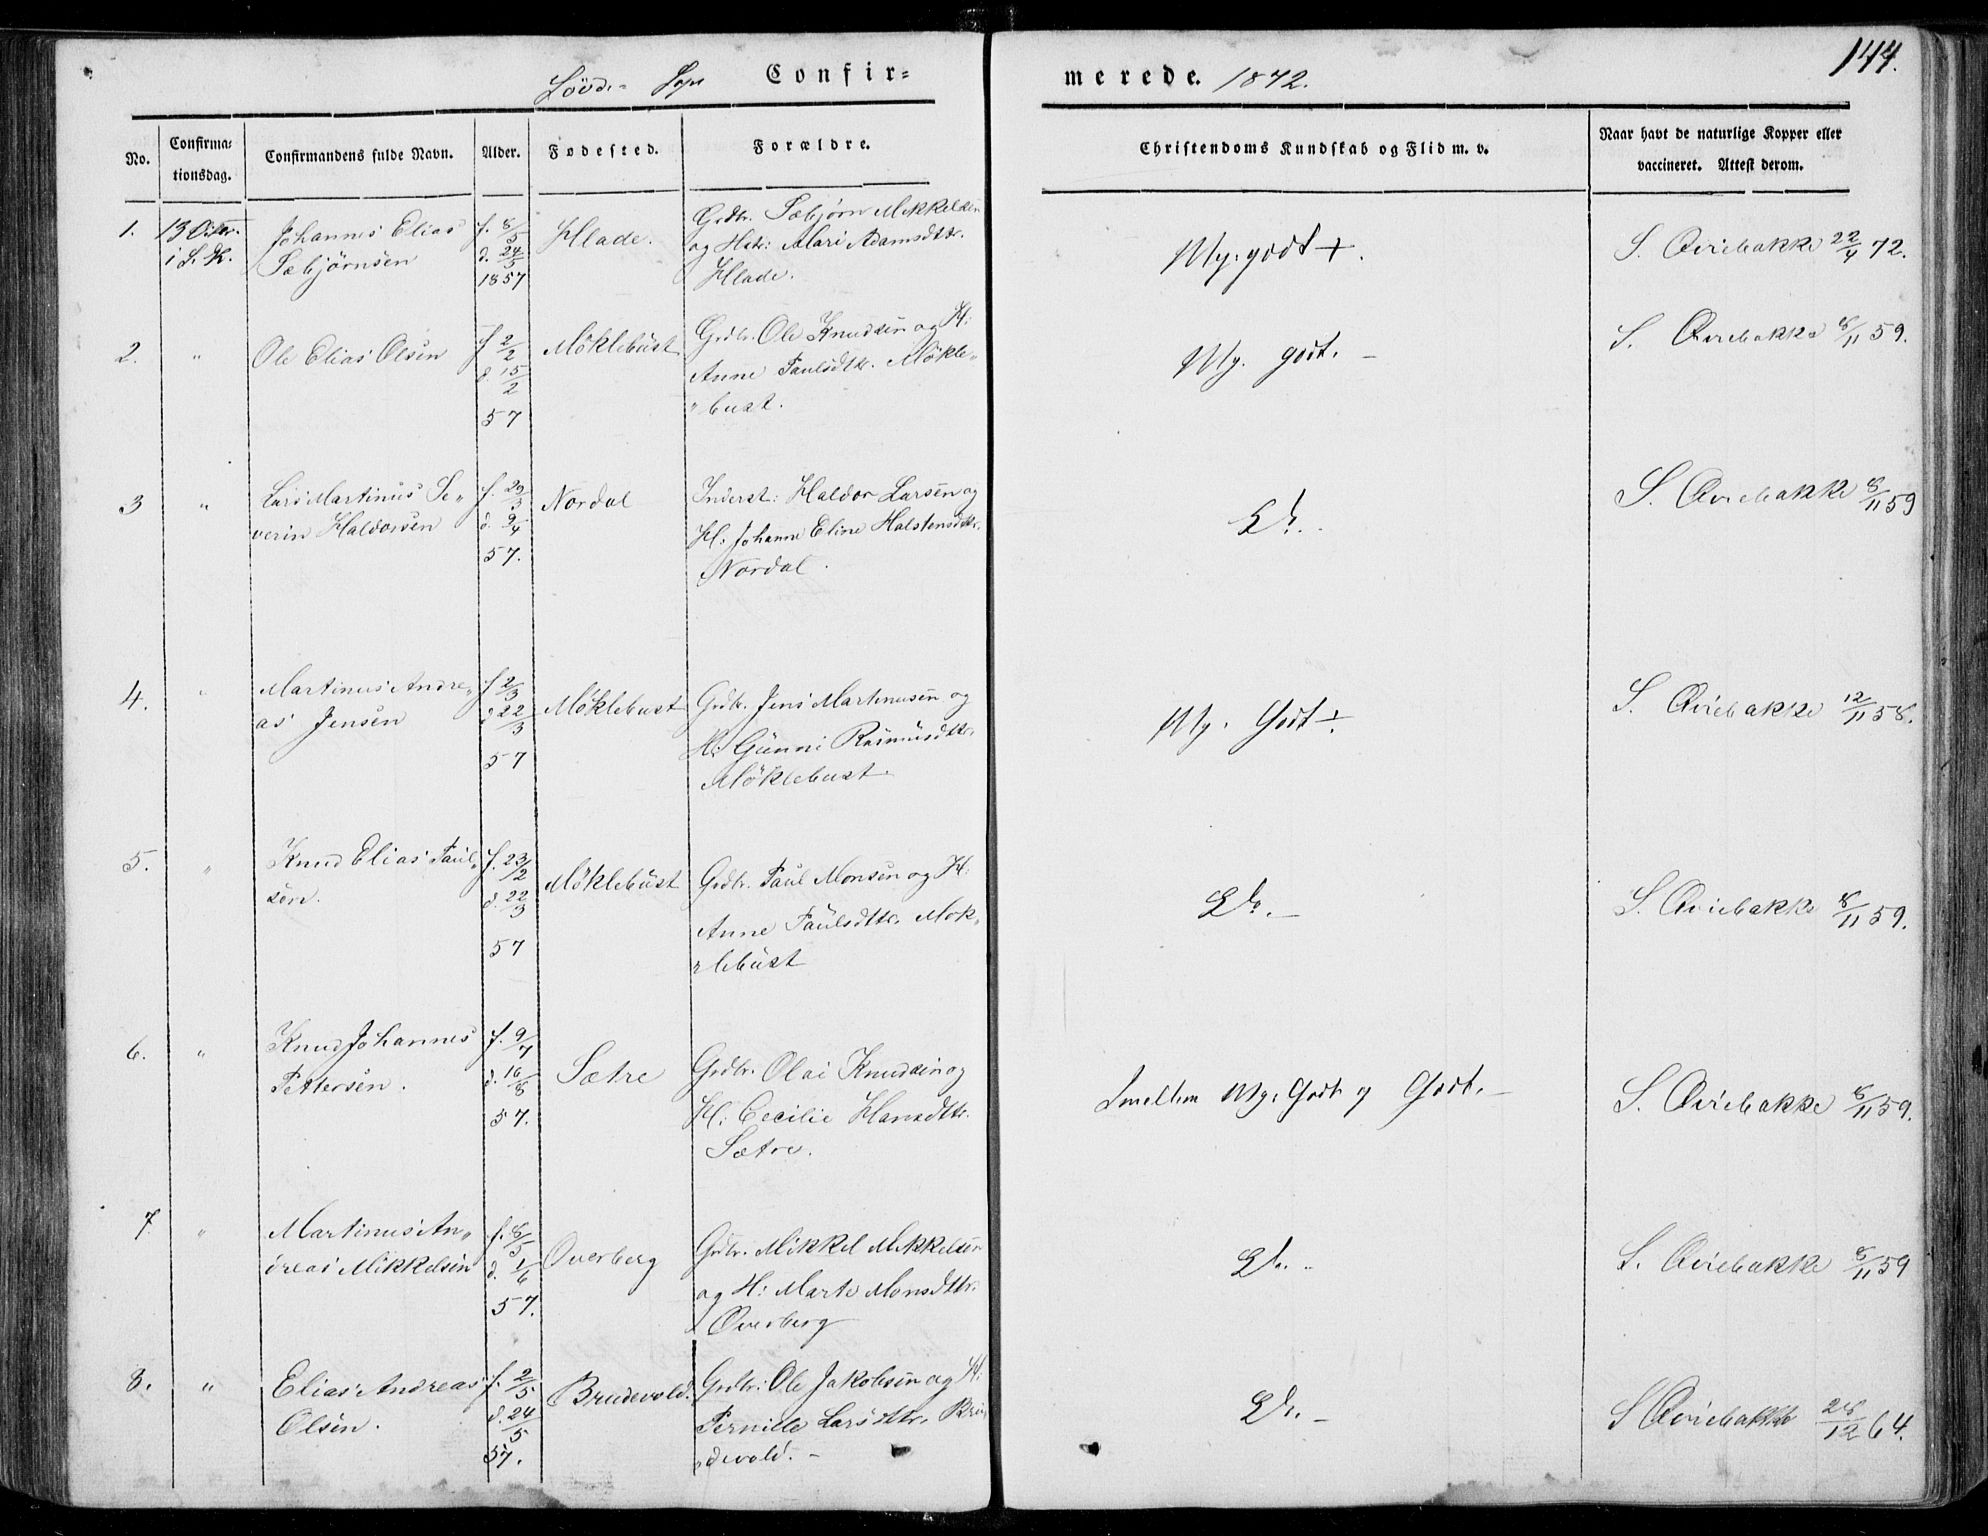 144.
Sogn Confirmerede. 1872.
No.
Confirmationsdag.
Confirmandens fulde Navn.
Alder.
Fødested.
Forældre.
Christendoms Kundskab og Flid m. v.
Naar havt de naturlige Kopper eller
vaccineret. Attest derom.
1.
13 Octbr.
i S. K.
Johannes Elias
Sæbjørnsen
f. 8/5
d. 24/5
1857
Hlade.
Grdbr. Sæbjørn Mikkelsen
og Hstr: Mari Adamsdttr.
Hlade.
Mg. godt +.
S. Aviebakke 22/4 72.
2.
"
Ole Elias Olsen
f 2/2
d 15/2
57
Möklebust
Grdbr. Ole Knudsen og H:
Anne Paulsdttr. Mökle„
„bust.
Mg. godt. –
S. Aviebakke 8/11 59.
3
"
Lars Martinus Se„
verin Haldorsen
f. 29/3
d. 9/4
57.
Nordal
Inderst: Haldor Larsen og
H: Johanne Eline Halstensdttr.
Nordal.
Do. –
S. Aviebakke 8/11 59
4.
"
Martinus Andre„
as Jensen
f 2/3
d 22/3
57
Möklebust
Grdbr. Jens Martinusen og
H: Gunni Rasmusdttr.
Möklebust.
Mg. Godt ÷
S. Aviebakke 12/11 58.
5.
"
Knud Elias Paul„
sen.
f. 23/2
d. 22/3
57
Möklebust
Grdbr. Paul Monsen og H:
Anne Paulsdttr. Mök„
„lebust
Do. –
S. Aviebakke 8/11 59.
6.
"
Knud Johannes
Pettersen.
f. 9/7
d. 16/8
57.
Sætre
Grdbr. Olai Knudsen og
H: Cecilie Hansdttr.
Sætre.
Imellem Mg. Godt og Godt. –
S. Aviebakke 8/11 59.
7.
"
Martinus An„
dreas Mikkelsen
f. 8/5
d. 1/6
57.
Overberg
Grdbr. Mikkel Mikkelsen
og H: Marte Monsdttr.
Overberg
Do. –
S. Aviebakke 8/11 59
8.
"
Elias Andreas
Olsen.
f. 2/5
d. 24/5
57.
Brudevold.
Grdbr: Ole Jakobsen og H:
Pernille Larsdttr. Bru„
„devold. –
Do. –
S Aviebakke 28/12 64.